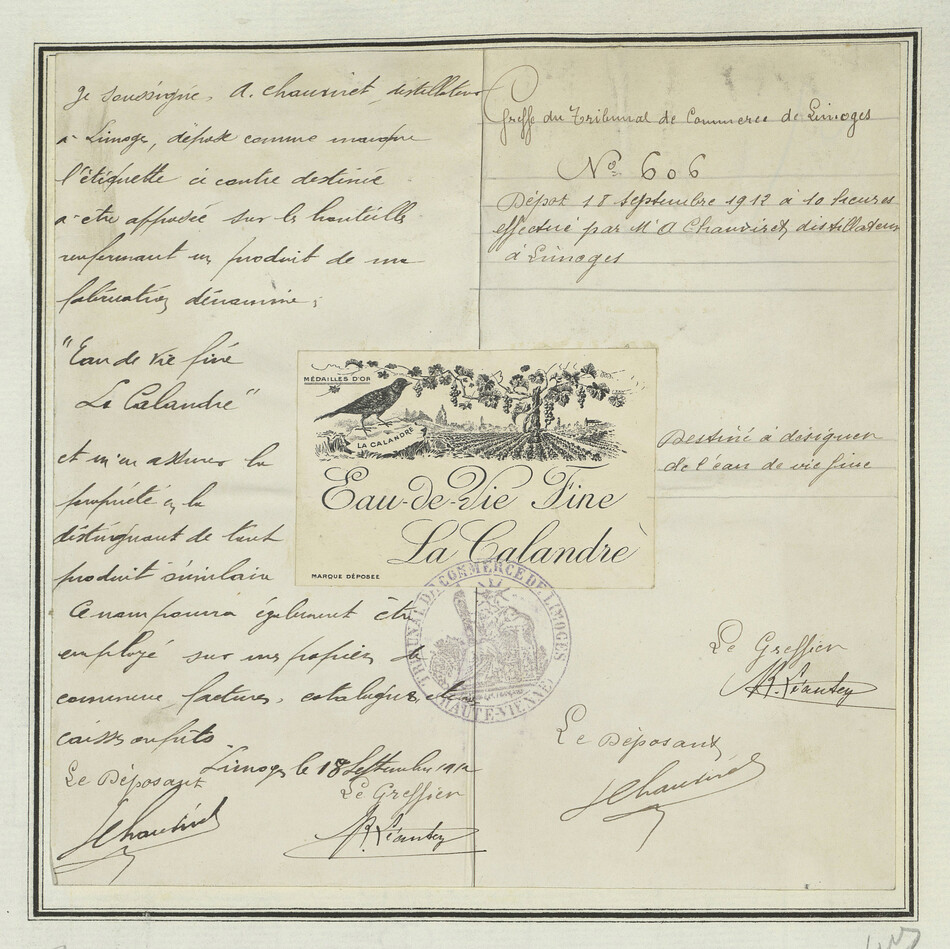 Je soussigné, A. Chauviret, distillateur
à Limoges, dépose comme marque
l'étiquette ci contre destinée
à être apposée sur les bouteilles
renfermant un produit de ma
fabrication dénommé;
"Eau de Vie fine
La Calandre"
et m'en assurer la
propriété en la
distinguant de tout
produit similaire
Ce nom pourra également être
employé sur mes papiers de
commerce, factures, catalogues, etc
caisses ou fûts
Limoges le 18 Septembre 1912
Le Déposant
Le Greffier
Greffe du Tribunal de Commerce de Limoges
No 606
Dépot 18 Septembre 1912 à 10 heures
effectué par Mr A Chauviret, distillateur
à Limoges
MÉDAILLES D'OR
LA CALANDRE
Eau-de-Vie Fine
La Calandre
MARQUE DÉPOSÉE
Destiné à désigner
de l'eau de vie fine
TRIBUNAL DE COMMERCE DE LIMOGES
HAUTE-VIENNE
Le Greffier
Le Déposant
Chauviret